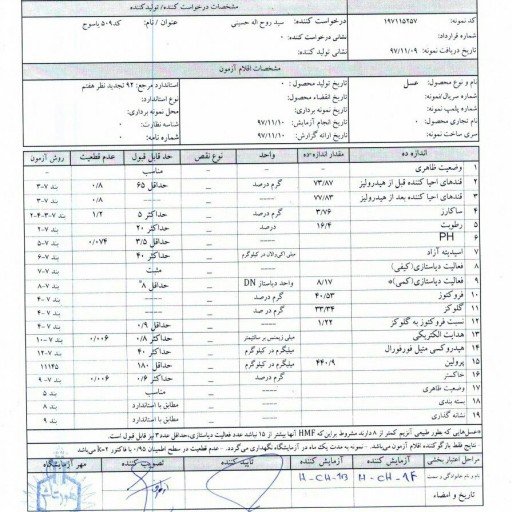 مشخصات درخواست کننده / تولیدکننده
کد نمونه: ۱۹۷۱۱۵۲۵۷ درخواست کننده: سید روح اله حسینی عنوان / نام: کد ۵۰۹ یاسوج
شماره قرارداد: نشانی درخواست کننده: ۰
تاریخ دریافت نمونه: ۹۷/۱۱/۰۹ نشانی تولید کننده:
مشخصات اقلام آزمون
نام و نوع محصول: عسل تاریخ تولید محصول: ۰ استاندارد مرجع: ۹۲ تجدید نظر هفتم
شماره سریال/نمونه: تاریخ انقضاء محصول: نوع استاندارد:
شماره پلمپ نمونه: تاریخ نمونه برداری: محل نمونه برداری:
نام تجاری محصول: ۰ تاریخ انجام آزمایش: ۹۷/۱۱/۱۰ شناسه نظارت: ۰
سری ساخت نمونه: تاریخ ارائه گزارش: ۹۷/۱۱/۱۰ شماره نامه: ۰
اندازه ده مقدار اندازه ده واحد نوع نقص حد قابل قبول عدم قطعیت روش آزمون
۱ وضعیت ظاهری – مناسب – –
۲ قندهای احیا کننده قبل از هیدرولیز ۷۳/۸۷ گرم درصد – حداقل ۶۵ ۰/۸ بند ۷-۳
۳ قندهای احیا کننده بعد از هیدرولیز ۷۷/۸۳ – ---- ۰/۸ بند ۷-۳
۴ ساکارز ۳/۷۶ گرم درصد – حداکثر ۵ ۱/۲ بند ۷-۳-۴-۲
۵ رطوبت ۱۶/۴ درصد – حداکثر ۲۰ بند ۷-۲
۶ PH ---- – حداقل ۳/۵ ۰/۰۷۴ بند ۷-۵
۷ اسیدیته آزاد میلی اکی‌والان در کیلوگرم – حداکثر ۴۰ بند ۷-۶
۸ فعالیت دیاستازی(کیفی) ---- – مثبت بند ۷-۷
۹ فعالیت دیاستازی(کمی)* ۸/۱۷ واحد دیاستاز DN – حداقل ۸* بند ۷-۸
۱۰ فروکتوز ۴۰/۵۳ گرم درصد – ---- بند ۷-۴
۱۱ گلوکز ۳۳/۳۴ گرم در صد – ---- بند ۷-۴
۱۲ نسبت فروکتوز به گلوکز ۱/۲۲ ---- – حداقل ۰/۹ بند ۷-۴
۱۳ هدایت الکتریکی میلی زیمنس بر سانتیمتر – حداکثر ۰/۸ ۰/۰۰۶ بند ۷-۱۰
۱۴ هیدروکسی متیل فورفورال میلیگرم در کیلوگرم – حداکثر ۴۰ بند ۷-۱۲
۱۵ پرولین ۴۴۰/۹ میلیگرم در کیلوگرم – حداقل ۱۸۰ ۱۱۱۴۵
۱۶ خاکستر گرم درصد – حداکثر ۰/۶ ۰/۰۰۶ بند ۷-۹
۱۷ وضعیت ظاهری – مناسب بند ۵
۱۸ بسته بندی – مطابق با استاندارد بند ۸
۱۹ نشانه گذاری – مطابق با استاندارد بند ۹
*عسل‌هایی که بطور طبیعی آنزیم کمتر از ۸ دارند مشروط براین‌که HMF آنها بیشتر از ۱۵ نباشد عدد فعالیت دیاستازی،حداقل عدد۳ نیز قابل قبول است.
نتایج فقط بازگوکننده اقلام آزمون می‌باشد. - نمونه به مدت یک ماه در آزمایشگاه نگهداری می‌گردد. - عدم قطعیت در سطح اطمینان ۰/۹۵ با فاکتور k=۲ می‌باشد
مراحل اعتبار بخشی آزمایش کننده آزمایش کننده تاییدکننده تصویب کننده مهر آزمایشگاه
نام و نام خانوادگی و سمت
تاریخ و امضاء